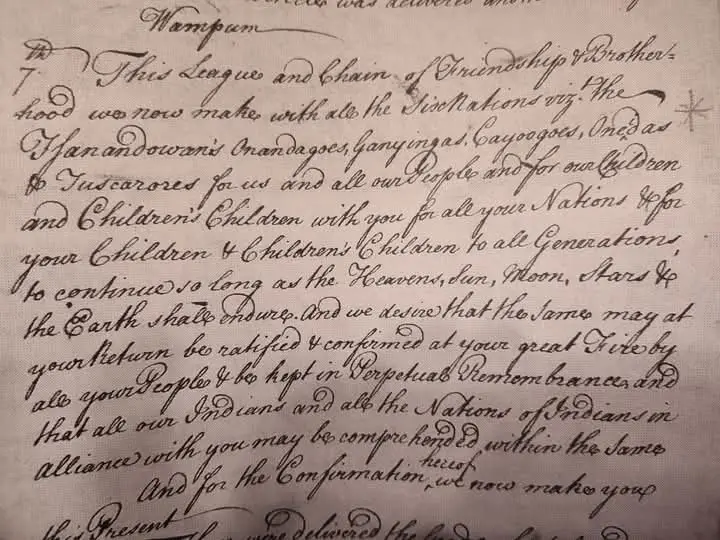 was delivered
Wampum
7th This League and Chain of Friendship & Brother=
hood we now make with all the Six Nations vizt. the
Tsanandowans Onandagoes, Ganyingas, Cayoogoes, Oneidas
& Tuscarores for us and all our People and for our Children
and Children's Children with you for all your Nations & for
your Children & Children's Children to all Generations,
to continue so long as the Heavens, Sun, Moon, Stars &
the Earth shall endure. And we desire that the same may at
your Return be ratified & confirmed at your great Fire by
all your People & be kept in Perpetual Remembrance, and
that all our Indians and all the Nations of Indians in
alliance with you may be comprehended within the same
And for the Confirmation hereof, we now make you
this Present
were delivered the